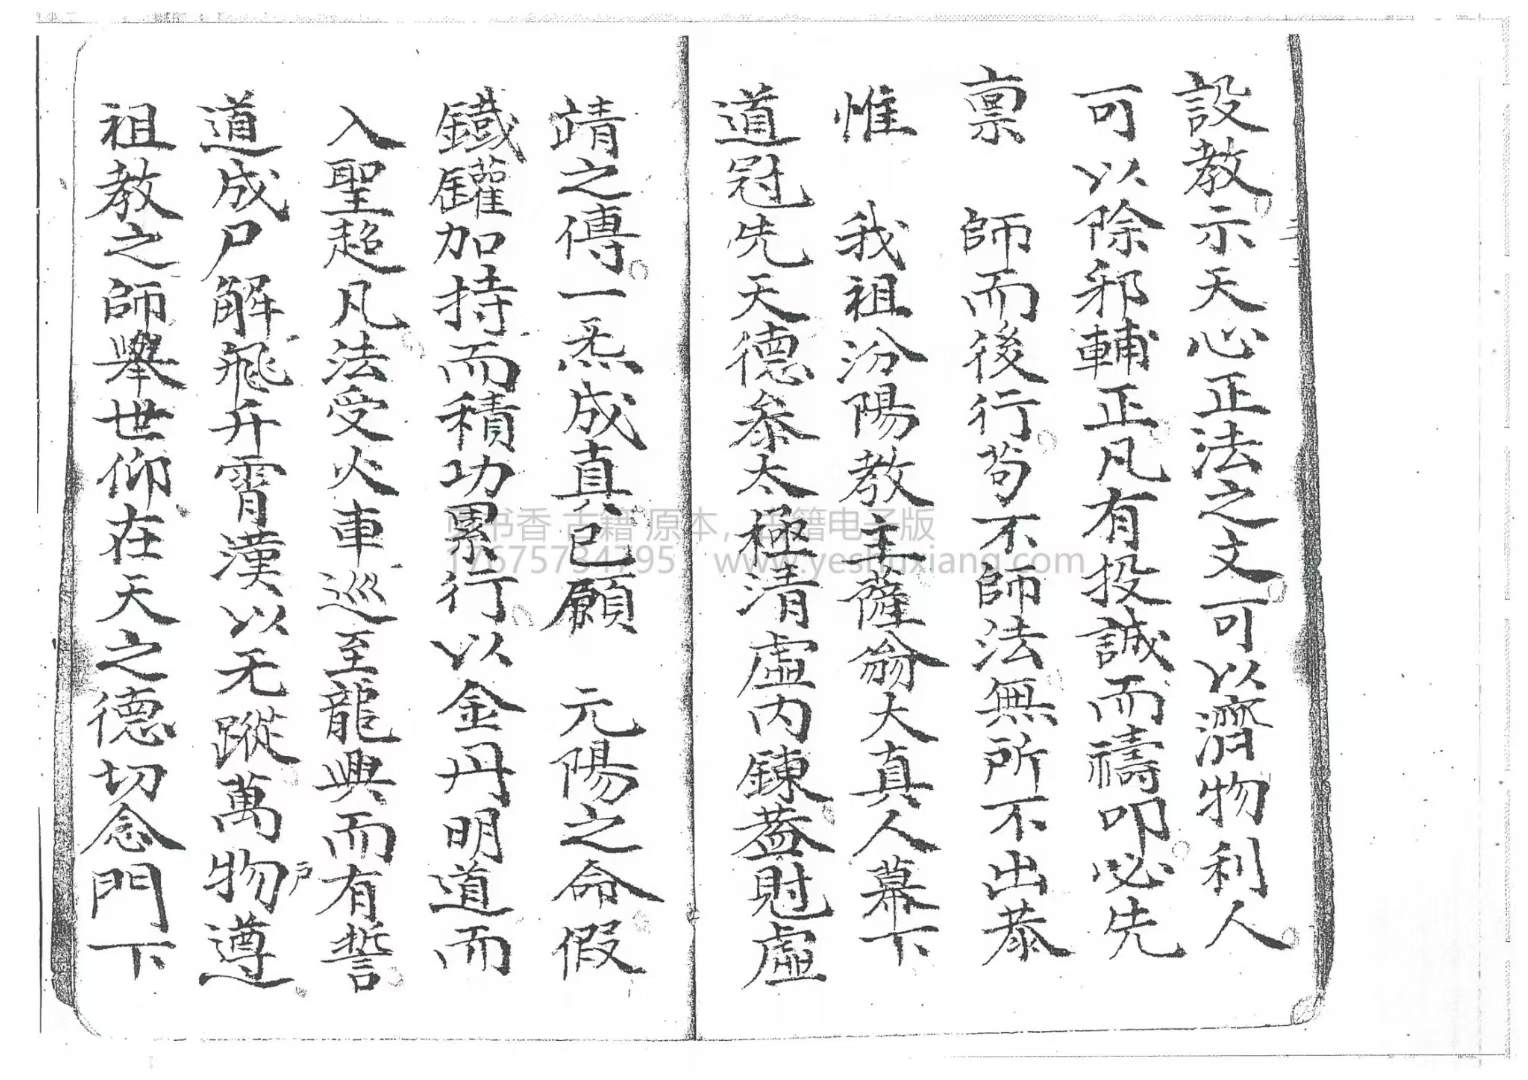 設教示天心正法之文可以濟物利人
可以除邪輔正凡有投誠而禱叩必先
稟 師而後行苟不師法無所不出恭
惟 我祖汾陽教主薩翁大真人幕下
道冠先天德參太極清虛內鍊葢則虛
靖之傳一炁成真已願 元陽之命假
鐵鑵加持而積功累行以金丹明道而
入聖超凡法受火車巡至龍興而有誓
道成尸解飛升霄漢以无蹤萬物遵
戶
祖教之師舉世仰在天之德切念門下
书香 古籍 原本，古籍电子版
www.yeshuxiang.com